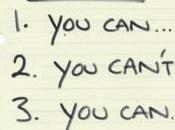 1. YOU CAN...
2. YOU CAN'T
3. YOU CAN.